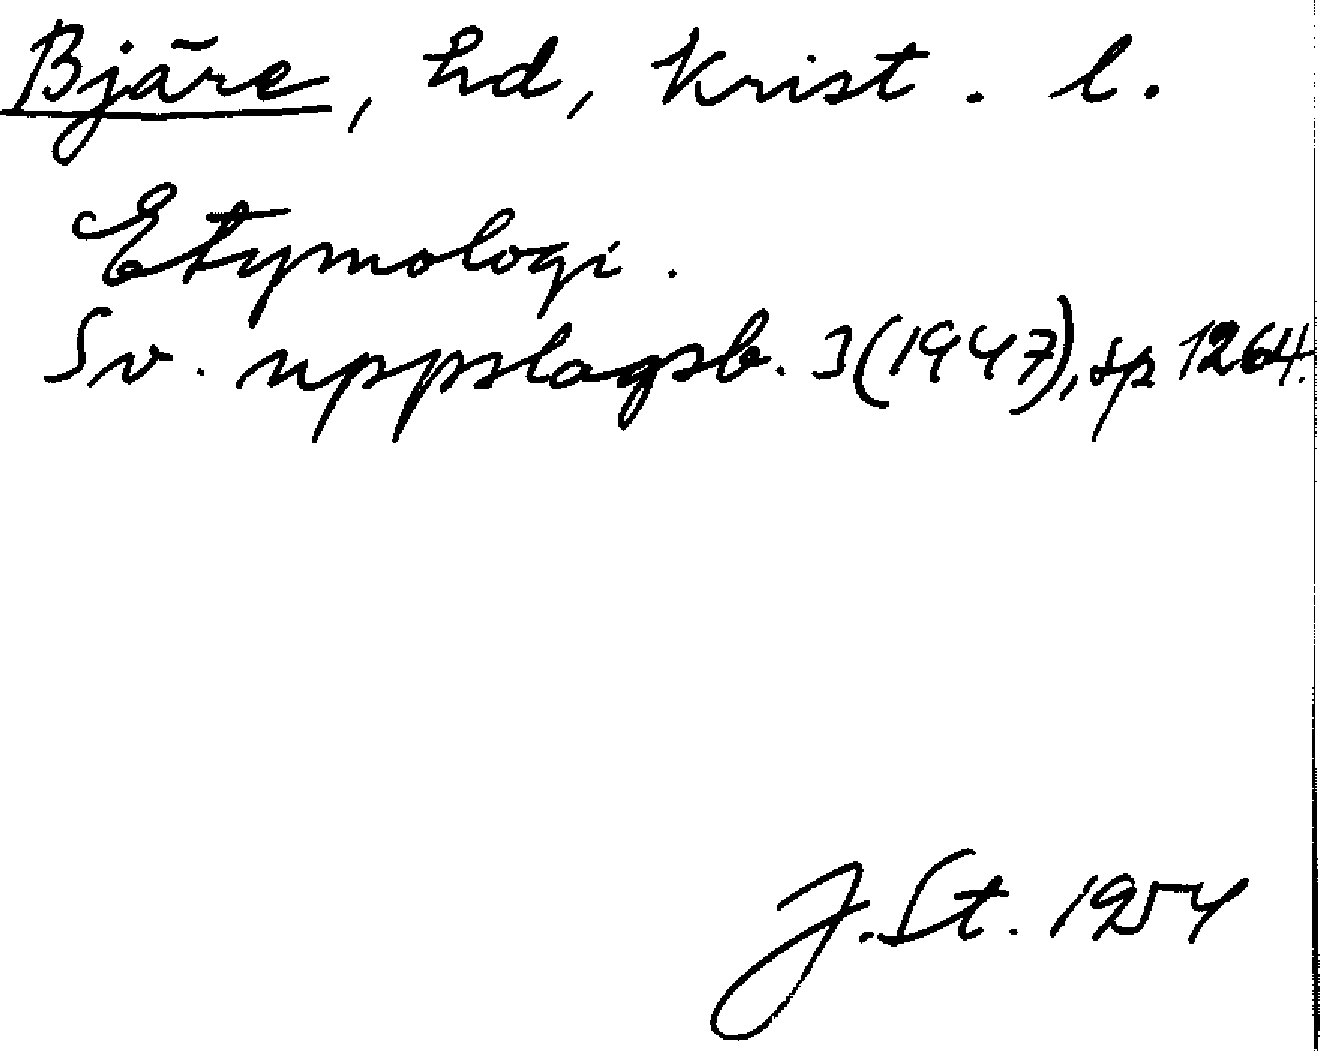 Bjäre, hd, Krist. l.
Etymologi.
Sv. uppslagsb. 3(1947), sp 1264.
J. St. 1954